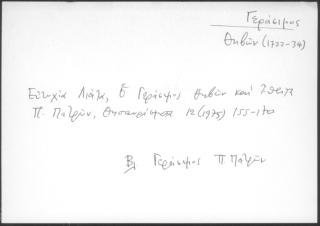 Γεράσιμος
Θηβῶν (1722-34)
Εὐτυχία Λιάτα, Ὁ Γεράσιμος Θηβῶν καὶ
Π. Πατρῶν, Θησαυρίσματα 12 (1975) 155-170
Βλ Γεράσιμος Π Πατρῶν